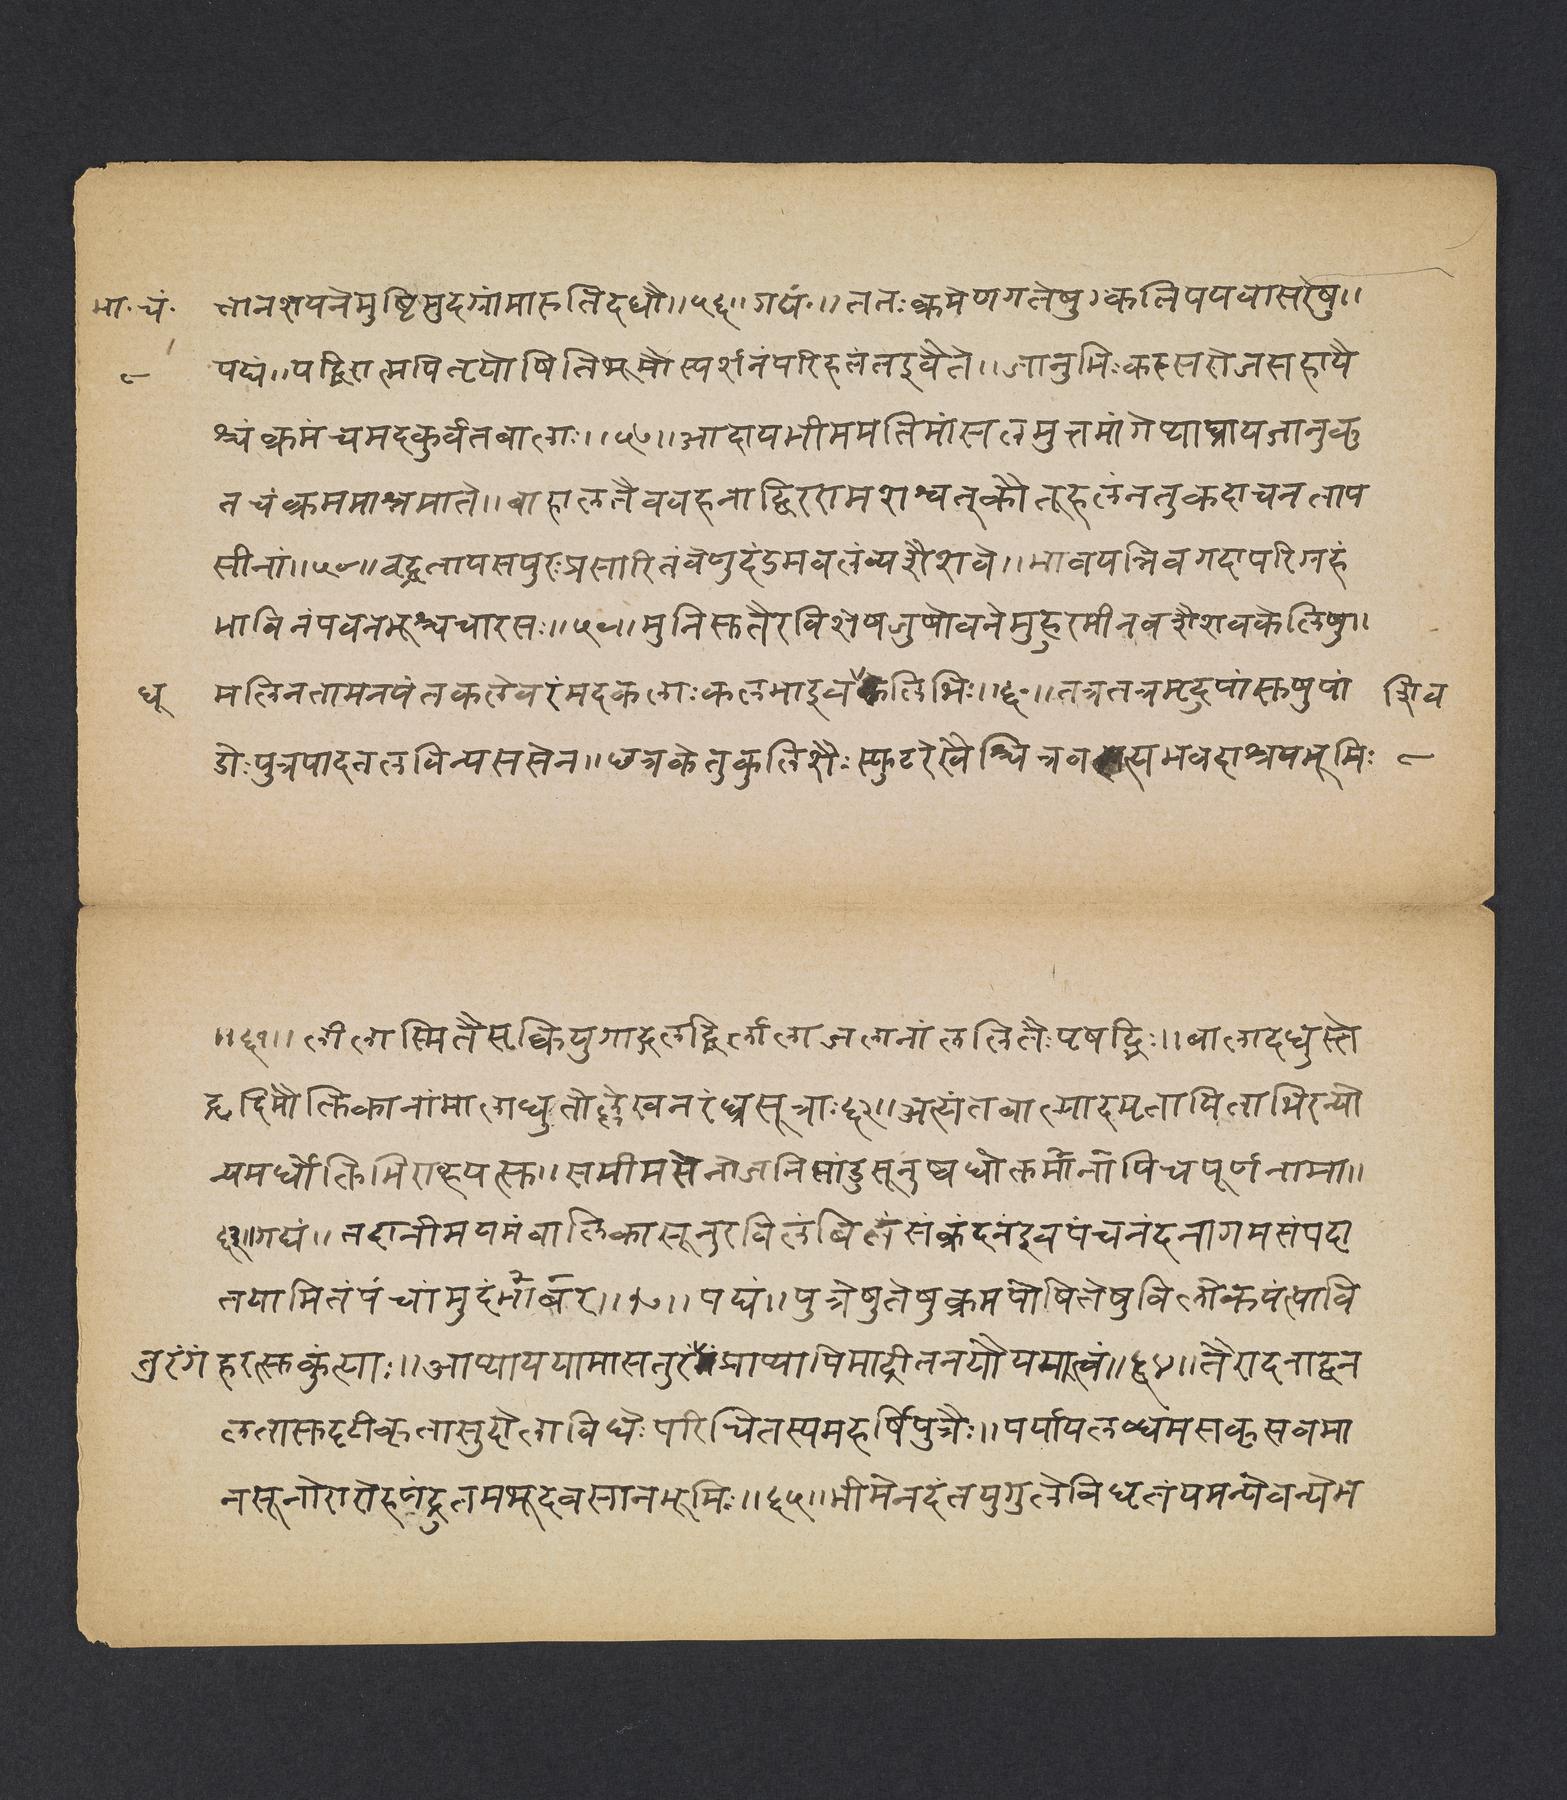 भा. चं. तानशयनेमुष्टिमुदग्रांमारुतिदधौ॥५६॥गद्यं॥ततःक्रमेणगतेषुकतिपयवासरेषु॥
८ पद्यं॥पद्भिरात्मपितृयोषितिभूमौस्पर्शनंपरिहृतंतइवैते॥जानुभिःकरसरोजसहायै
श्चंक्रमंचमदकुर्वतबालाः॥५७॥आदायभीममतिमांसलमुत्तमांगेप्याघ्रायजानुकृ
तचंक्रममाश्रमांते॥बाहालतैववहनाद्विररामशश्वत्कौतूहलंनतुकदाचनताप
सीनां॥५८॥वृद्धतापसपुरःप्रसारितंवेणुदंडमवलंब्यशैशवे॥भावयन्निवगदापरिग्रहं
भाविनंपवनभूश्चचारसः॥५९॥मुनिसुतैरविशेषजुषोवनेमुहुरमीनवशैशवकेलिषु॥
धू मलिनतामनयंतकलेवरंमदकलाःकलभाइवकेलिभिः॥६०॥तत्रतत्रमृदुपांसुषुपां
डोःपुत्रपादतलविन्यसनेन॥छत्रकेतुकुलिशैःस्फुटरेखैश्चित्रवत्यभवदाश्रमभूमिः ८
॥६१॥लीलास्मितैसृक्वियुगाद्गलद्भिर्लालाजलानांललितैःपृषद्भिः॥बालादधुस्ते
हृदिमौक्तिकानांमालाधुतोल्लेखनरंध्रसूत्राः६२॥अत्यंतबाल्यादमृतायिताभिरन्यो
न्यमर्धोक्तिभिराह्वयत्सु॥सभीमसेनोजनिपांडुसूनुष्वर्धोक्तमानोपिचपूर्णनामा॥
६३॥गद्यं॥तदानीमयमंबालिकासूनुरविलंबितंसंक्रंदनंइवपंचनंदनागमसंपदा
तयामितंपंचांमुदंबभार॥१७॥पद्यं॥पुत्रेषुतेषुक्रमपोषितेषुविलोकयंत्यावि
तुरंगं हरत्सुकुंत्याः॥आप्याययामासतुरंतरंगंप्राप्यापिमाद्रीतनयौयमात्वं॥६४॥तैरादनाद्वन
लतासुदृढीकृतासुदोलाविधेःपरिचितस्यमहर्षिपुत्रैः॥पर्यायलब्धमसकृत्सवमा
नसूनोरारोहणंद्रुतमभूदवसानभूमिः॥६५॥भीमेनदंतयुगुलेविधृतंयमन्येवन्येभ